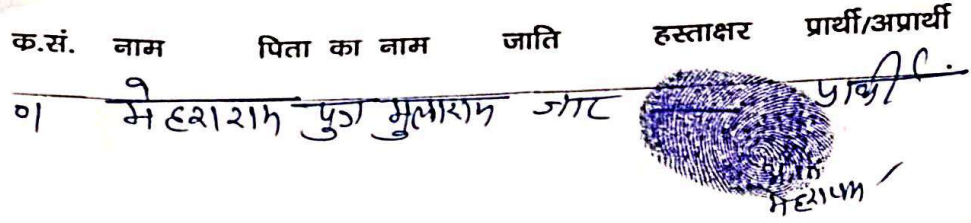 क.सं. नाम पिता का नाम जाति हस्ताक्षर प्रार्थी/अप्रार्थी
०१ मेहराराम पुत्र मुलाराम जाट प्रार्थी